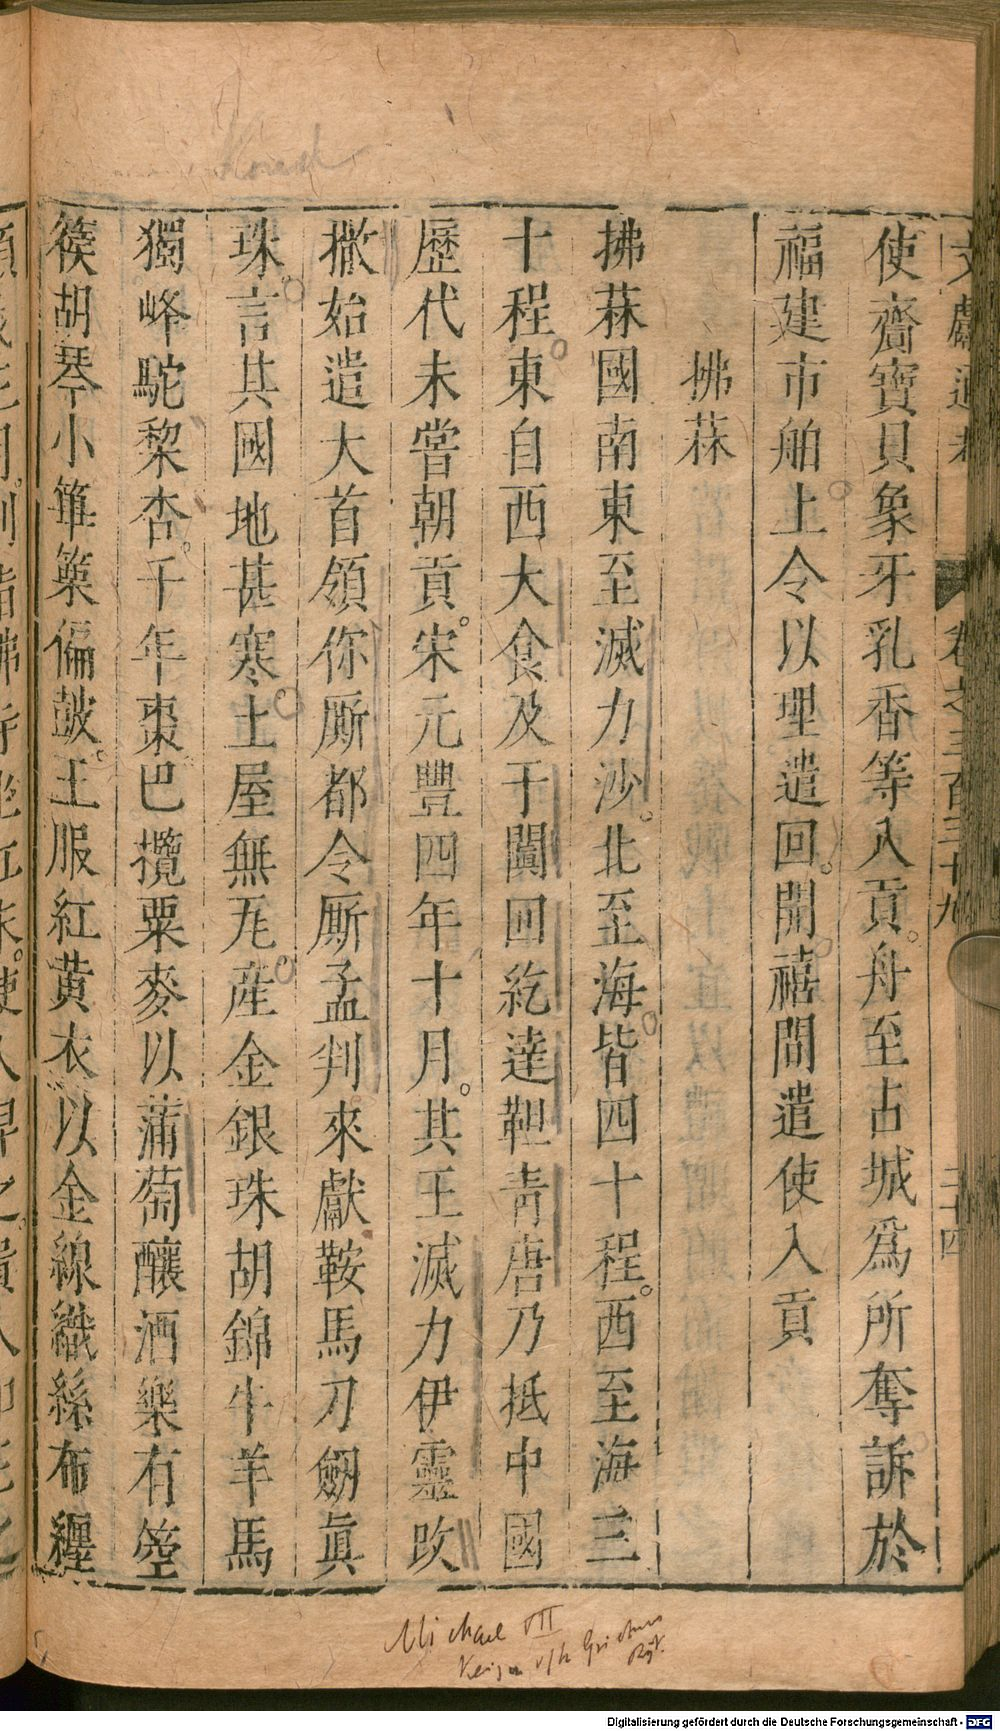 文獻通考 卷之三百三十九 二十四
使齎寶貝象牙乳香等入貢。舟至占城爲所奪訴於
福建市舶上令以理遣回。開禧間遣使入貢
拂菻
拂菻國南東至滅力沙。北至海皆四十程。西至海三
十程。東自西大食及于闐回紇達靼青唐乃抵中國
歷代未嘗朝貢。宋元豐四年十月。其王滅力伊靈改
撒始遣大首領你厮都令厮孟判來獻鞍馬刀劒眞
珠。言其國地甚寒土屋無瓦產金銀珠胡錦牛羊馬
獨峰駝棃杏。千年棗巴欖粟麥以蒲萄釀酒樂有箜
篌胡琴小篳篥偏鼓。王服紅黃衣以金線織絲布纏
Michael VII
Digitalisierung gefördert durch die Deutsche Forschungsgemeinschaft - DFG